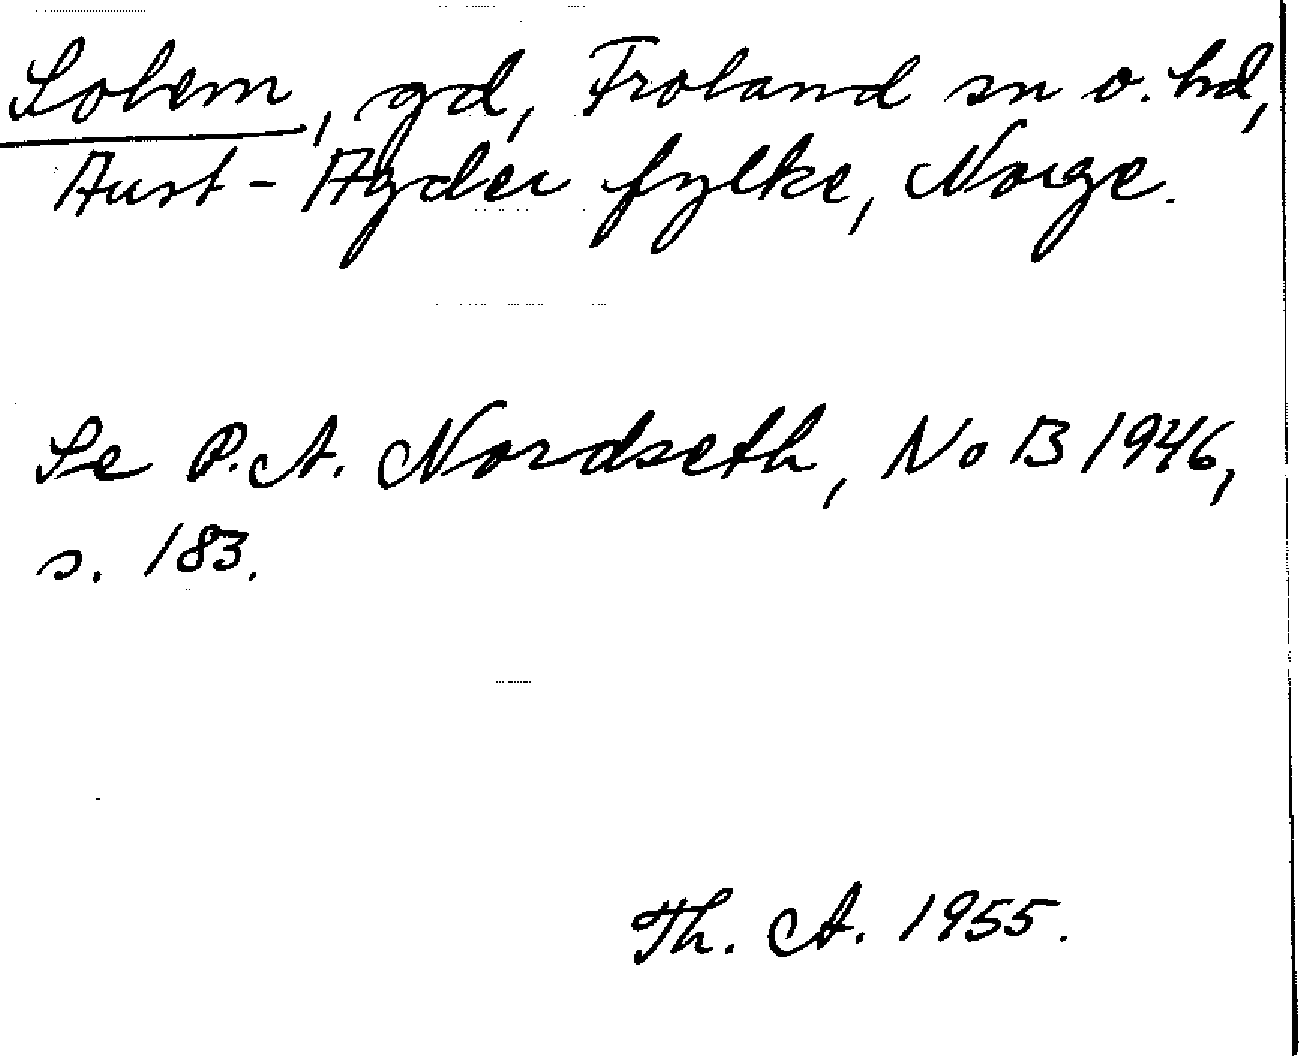 Solem, gd, Froland sn o. hd,
Aust-Agder fylke, Norge.
Se P.A. Nordseth, NoB 1946,
s. 183.
Th. A. 1955.